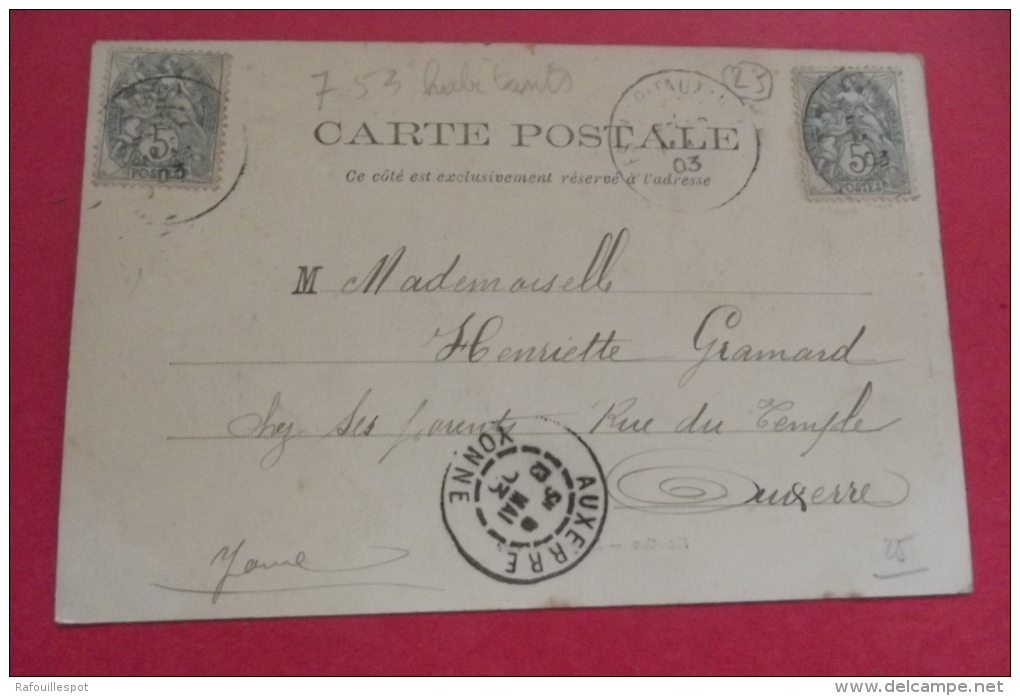 753 habitants
23
5
POSTES
03
CARTE POSTALE
03
5
03
POSTES
Ce côté est exclusivement réservé à l'adresse
M Mademoiselle
Henriette Gramard
Chez ses parents Rue du Temple
Auxerre
AUXERRE
YONNE
MAI
03
Yonne
25
Rafouillespot
www.delcampe.net